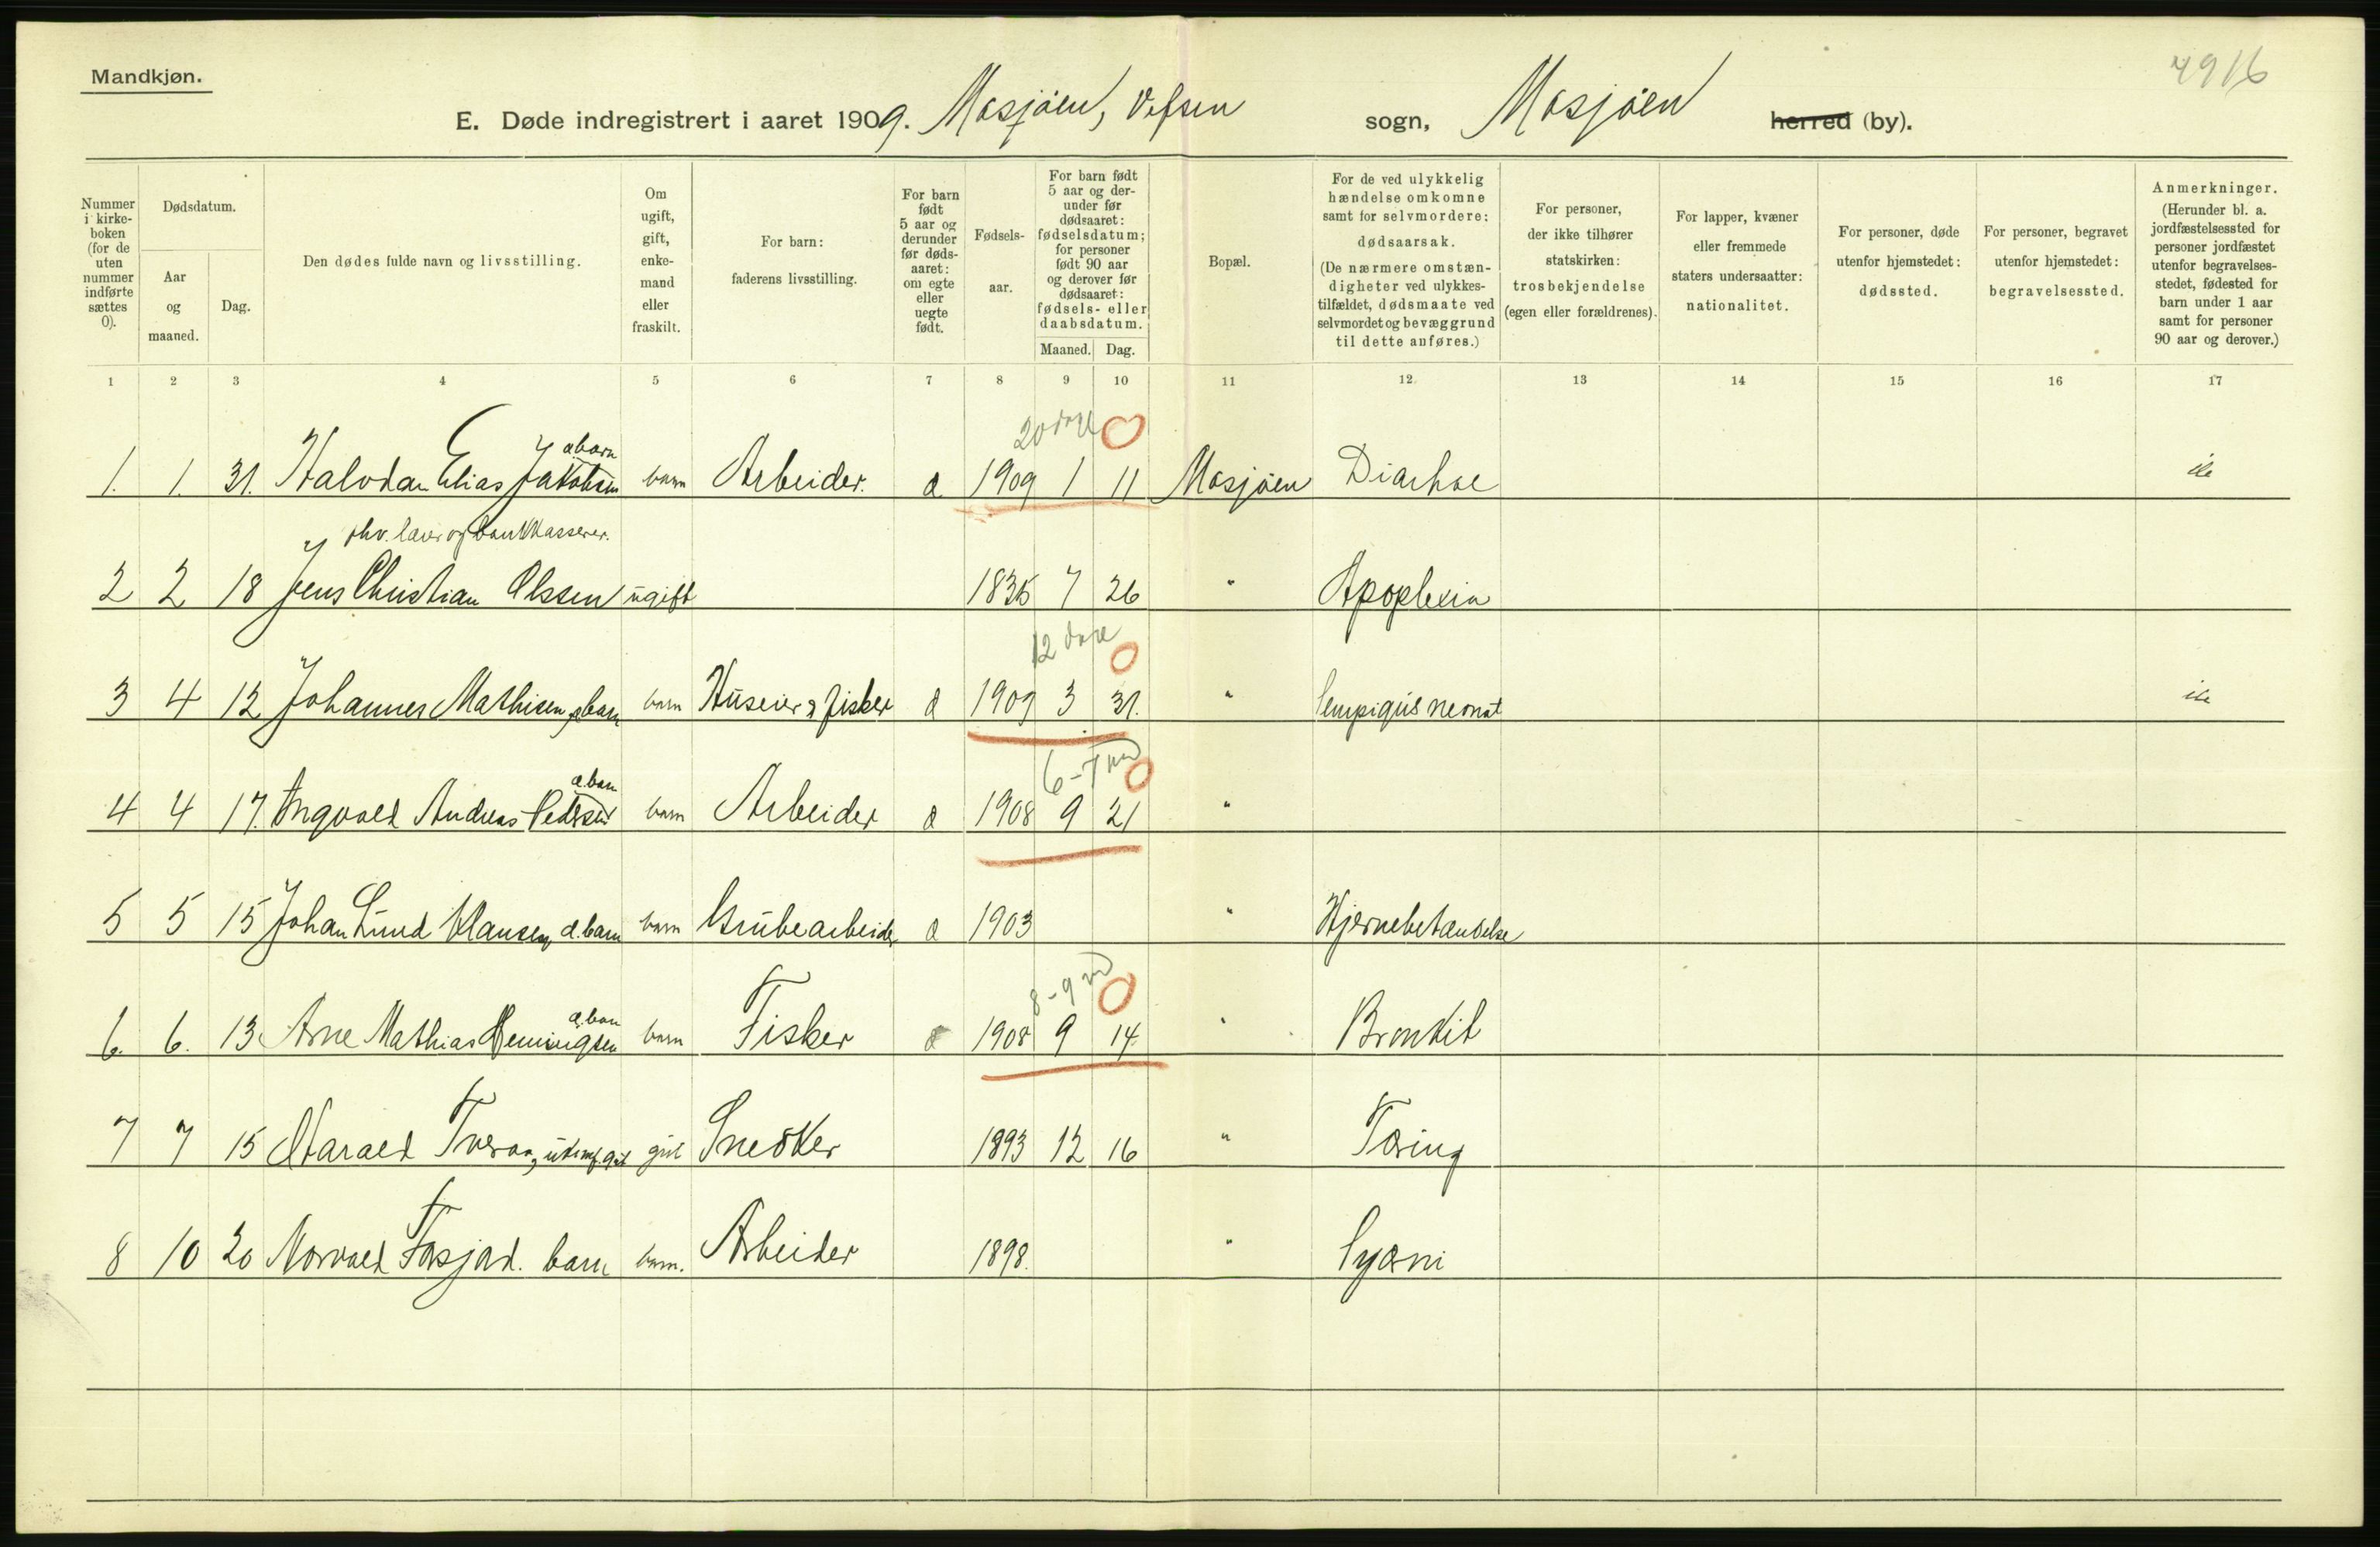 Mandkjøn.
4916
E. Døde indregistrert i aaret 1909. Mosjøen, Vefsen sogn, Mosjøen herred (by).
Nummer i kirke-boken (for de uten nummer indførte sættes 0).
Dødsdatum.
Aar og maaned.
Dag.
Den dødes fulde navn og livsstilling.
Om ugift, gift, enke-mand eller fraskilt.
For barn: faderens livsstilling.
For barn født 5 aar og derunder før døds-aaret: om egte eller uegte født.
Fødsels-aar.
For barn født 5 aar og der-under før dødsaaret: fødselsdatum; for personer født 90 aar og derover før dødsaaret: fødsels- eller daabsdatum.
Maaned.
Dag.
Bopæl.
For de ved ulykkelig hændelse omkomne samt for selvmordere: dødsaarsak. (De nærmere omstæn-digheter ved ulykkes-tilfældet, dødsmaate ved selvmordet og bevæggrund til dette anføres.)
For personer, der ikke tilhører statskirken: trosbekjendelse (egen eller forældrenes).
For lapper, kvæner eller fremmede staters undersaatter: nationalitet.
For personer, døde utenfor hjemstedet: dødssted.
For personer, begravet utenfor hjemstedet: begravelsessted.
Anmerkninger. (Herunder bl. a. jordfæstelsessted for personer jordfæstet utenfor begravelses-stedet, fødested for barn under 1 aar samt for personer 90 aar og derover.)
1 2 3 4 5 6 7 8 9 10 11 12 13 14 15 16 17
20 dage
æ.barn
1. 1. 31. Halvdan Elias Jakobsen barn Arbeider. æ 1909 1 11 Mosjøen Diarhoe
fhv. lærer og bankkasserer.
2 2 18 Jens Christian Olssen ugift 1835 7 26 " Apoplexia
12 dage
3 4 12 Johannes Mathisen, æ barn barn Huseier & fisker æ 1909 3 31. " Pempigus neonat
6-7 md
æ.barn
4 4 17. Ingvald Andreas Pedersen barn Arbeider æ 1908 9 21 "
5 5 15 Johan Lund Klausen, æ.barn barn Grubearbeider æ 1903 " Hjernebetændelse
8-9 md
æ.barn
6. 6. 13 Arne Mathias Hemingsen barn Fisker æ 1908 9 14 " Bronkit
7 7 15 Harald Tveraa, ukonf. gut gut Snekker 1893 12 16 " Tæring
8 10 20 Norvald Fosjord. barn barn. Arbeider 1898. "